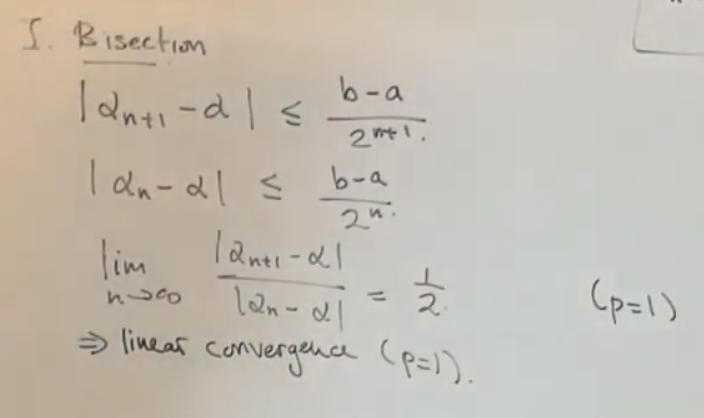 I. Bisection
|α_{n+1} - α| ≤ \frac{b-a}{2^{n+1}}.
|α_n - α| ≤ \frac{b-a}{2^n}.
lim_{n→∞} \frac{|α_{n+1} - α|}{|α_n - α|} = \frac{1}{2}. (p=1)
⇒ linear convergence (p=1).